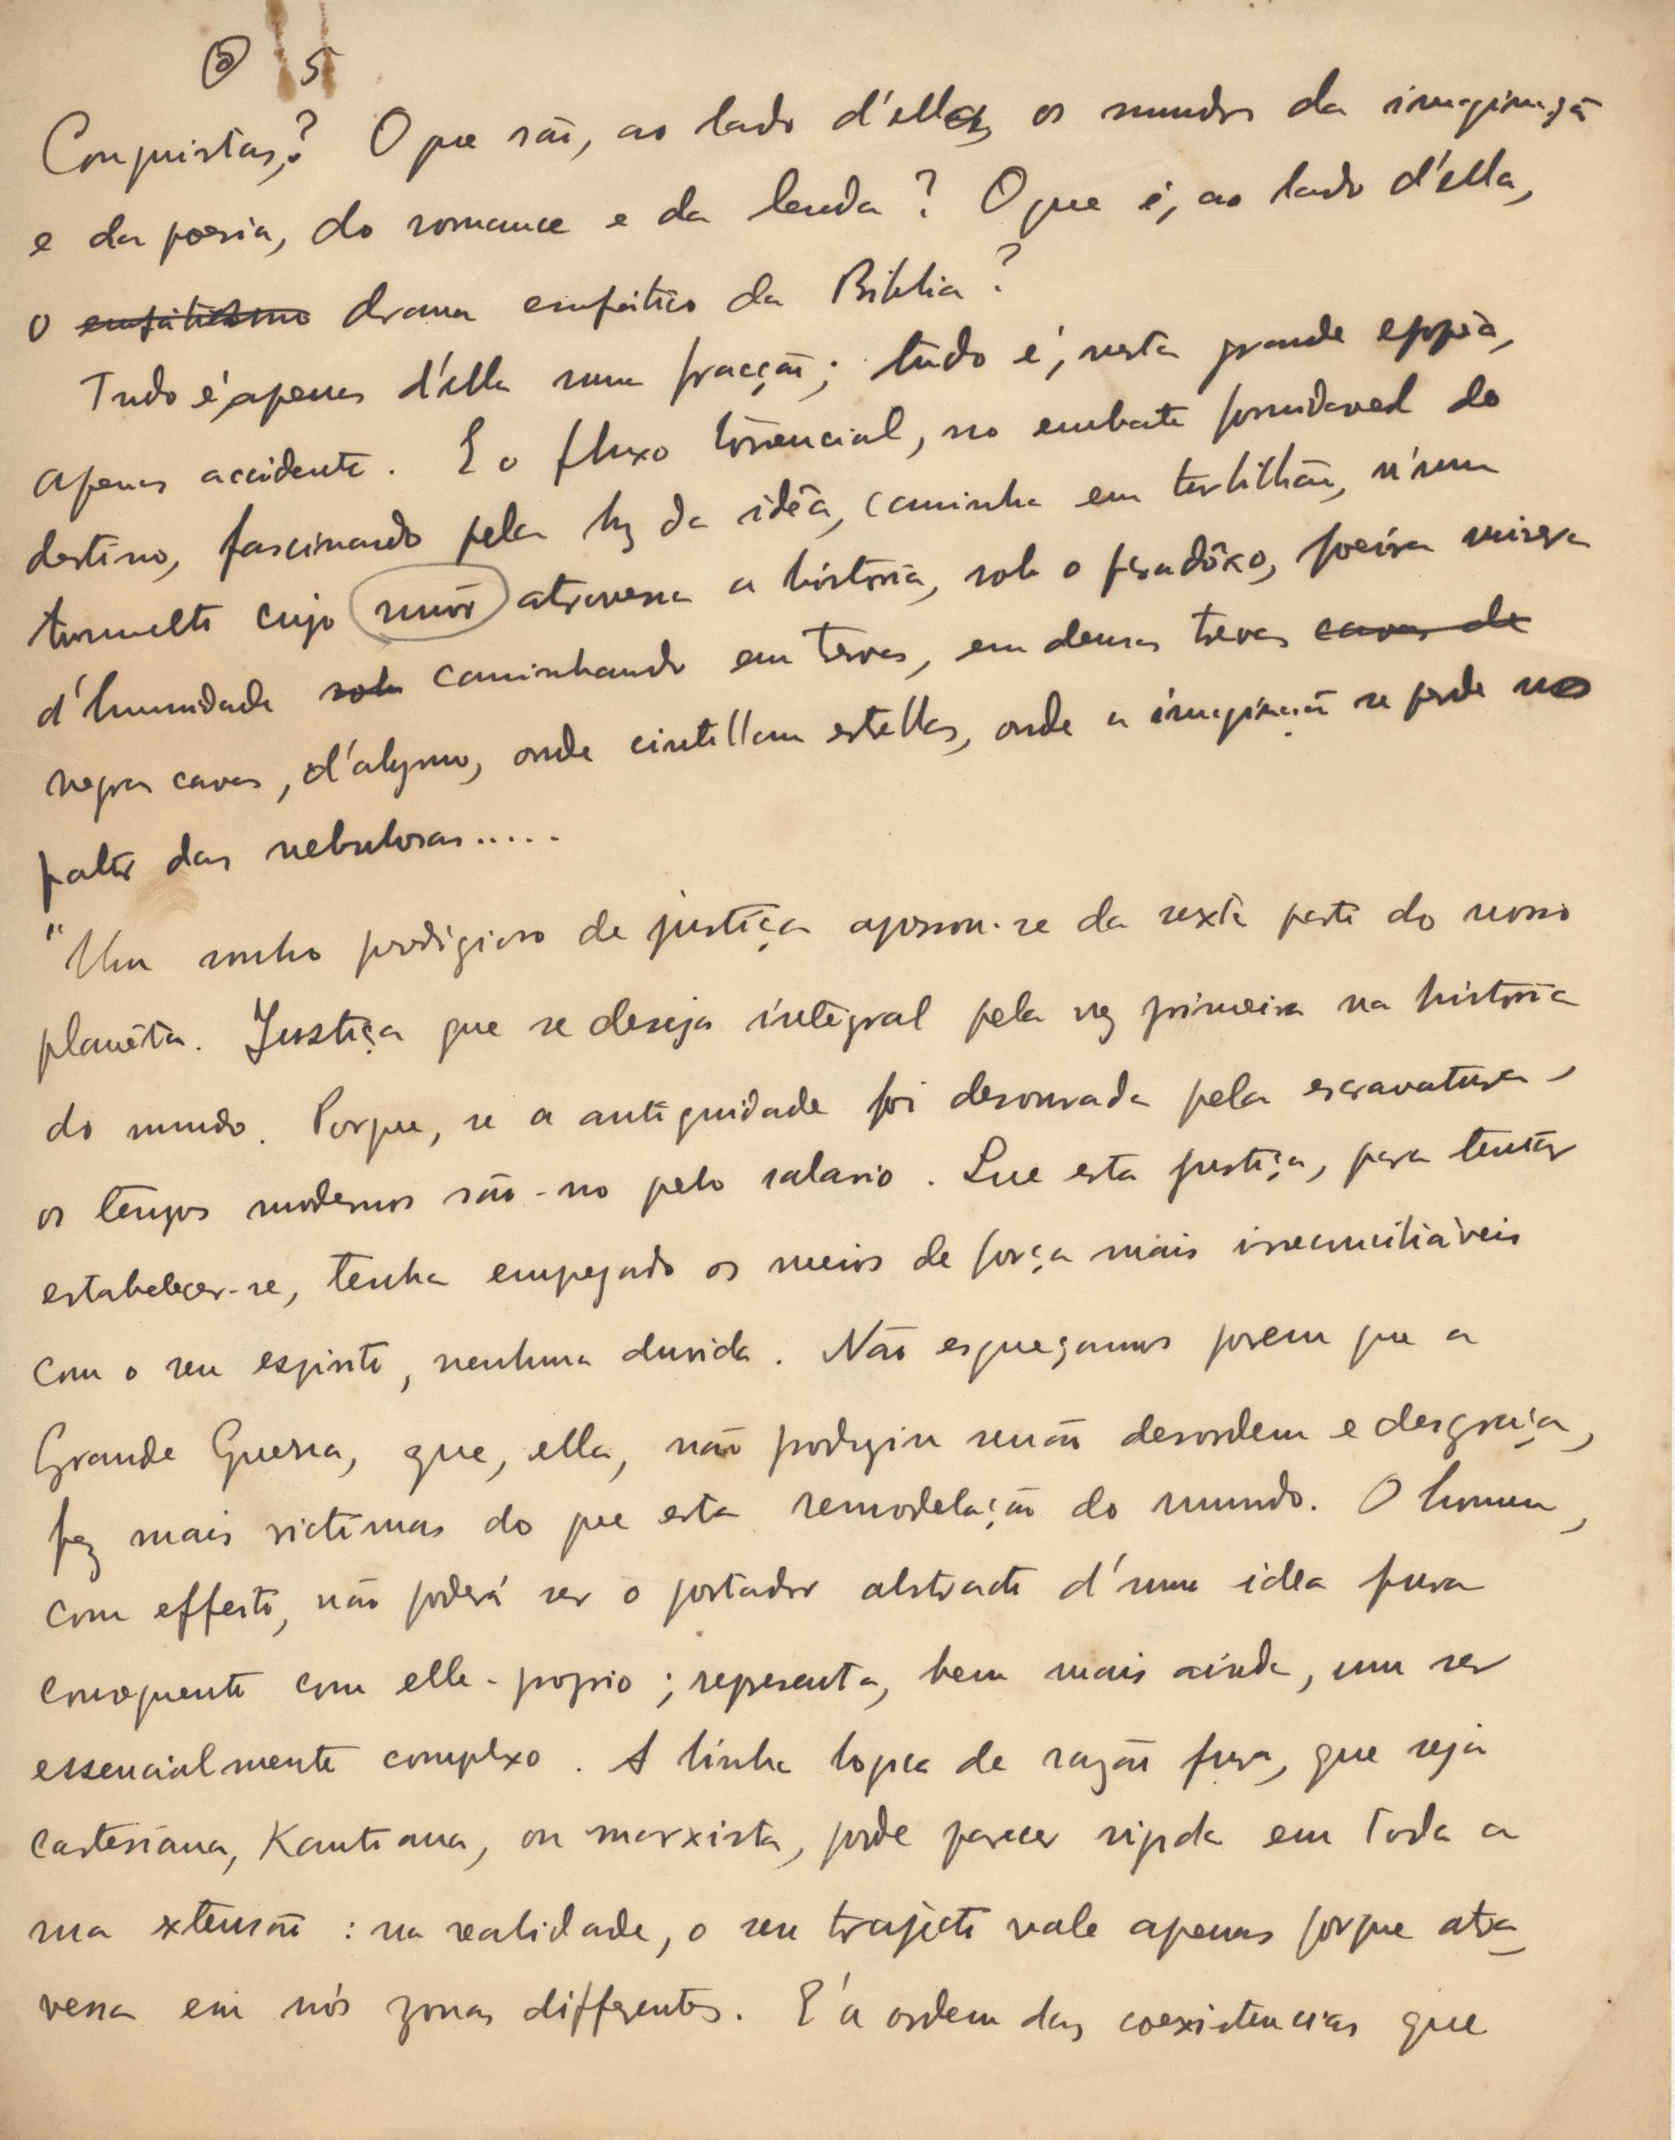 5
Conquistas? O que são, ao lado d'ella, os mundos da imaginação
e da poesia, do romance e da lenda? O que é, ao lado d'ella,
o enfatismo drama enfático da Biblia?
Tudo é apenas d'ella uma fracção; tudo é, nesta grande epopêa,
apenas accidente. E o fluxo torrencial, no embate formidavel do
destino, fascinando pela luz da idêa, caminha em turbilhão, n'um
tumulto cujo atravessa a história, sob o paradôxo, poeira misera
d'humidade sob caminhando em trevas, em densas trevas cavas de
negras cavas, d'abysmo, onde cintillam estrellas, onde a imaginação se perde no
palor das nebulosas.....
"Um sonho prodigioso de justiça apossou-se da sexta parte do nosso
planêta. Justiça que se deseja integral pela vez primeira na história
do mundo. Porque, se a antiguidade foi desonrada pela escravatura,
os tempos modernos são-no pelo salario. Que esta justiça, para tentar
estabelecer-se, tenha empregado os meios de força mais irreconciliáveis
com o seu espirito, nenhuma duvida. Não esqueçamos porem que a
Grande Guerra, que, ella, não produziu senão desordem e desgraça,
fez mais victimas do que esta remodelação do mundo. O homem,
com effeito, não poderá ser o portador abstracto d'uma idea pura
consequente com elle-proprio; representa, bem mais ainda, um ser
essencialmente complexo. A linha logica de razão pura, que seja
cartesiana, Kantiana, ou marxista, pode parecer rigida em toda a
sua extensão: na realidade, o seu trajecto vale apenas porque atra-
vessa em nós zonas differentes. E' a ordem das coexistencias que